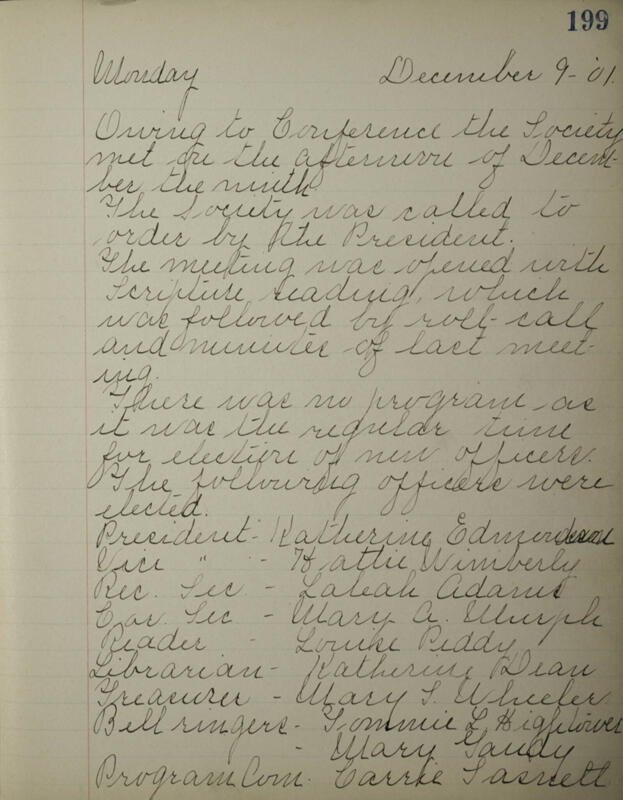 199
Monday December 9-'01.
Owing to Conference the Society
met on the afternoon of Decem-
ber the ninth.
The Society was called to
order by the President.
The meeting was opened with
Scripture reading, which
was followed by roll-call
and minutes of last meet-
ing.
There was no program as
it was the regular time
for election of new officers.
The following officers were
elected.
President - Katherine Edmondson
Vice " - Hattie Wimberly
Rec. Sec - Saleah Adams
Cor. Sec - Mary A. Murph
Reader - Louise Peddy
Librarian - Katherine Dean
Treasurer - Mary S. Wheeler
Bell ringers - Tommie L Hightower
- Mary Gandy
Program Com. Carrie Sasnett